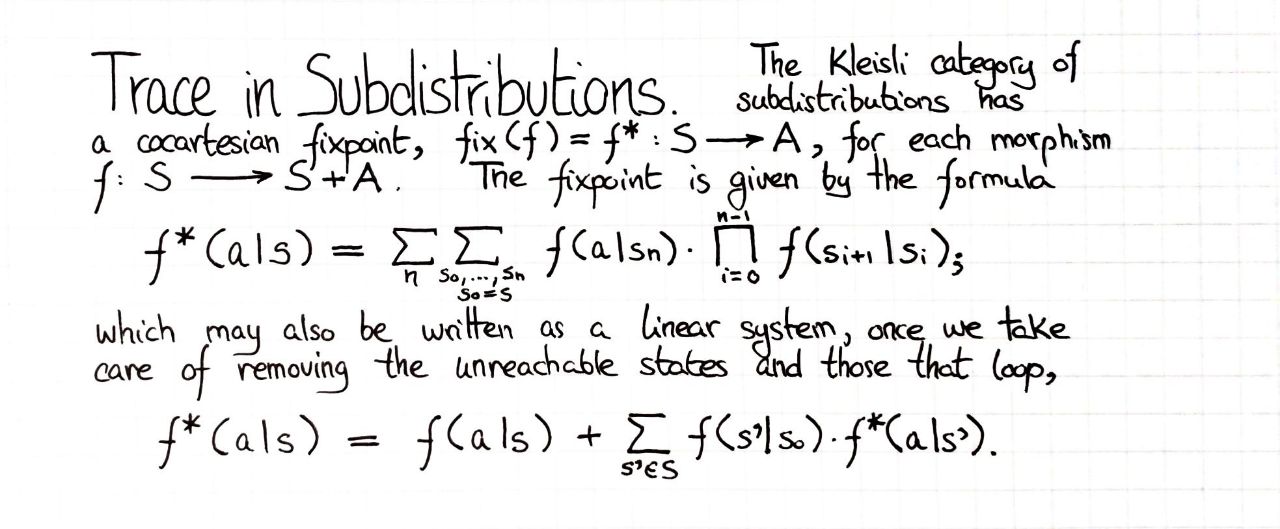 Trace in Subdistributions. The Kleisli category of
subdistributions has
a cocartesian fixpoint, fix(f) = f* : S ⟶ A, for each morphism
f: S ⟶ S+A. The fixpoint is given by the formula
f*(a|s) = ∑_n ∑_{s₀,...,sₙ s₀=s} f(a|sₙ)· ∏_{i=0}^{n-1} f(sᵢ₊₁|sᵢ);
which may also be written as a linear system, once we take
care of removing the unreachable states and those that loop,
f*(a|s) = f(a|s) + ∑_{s'∈S} f(s'|s₀)·f*(a|s').